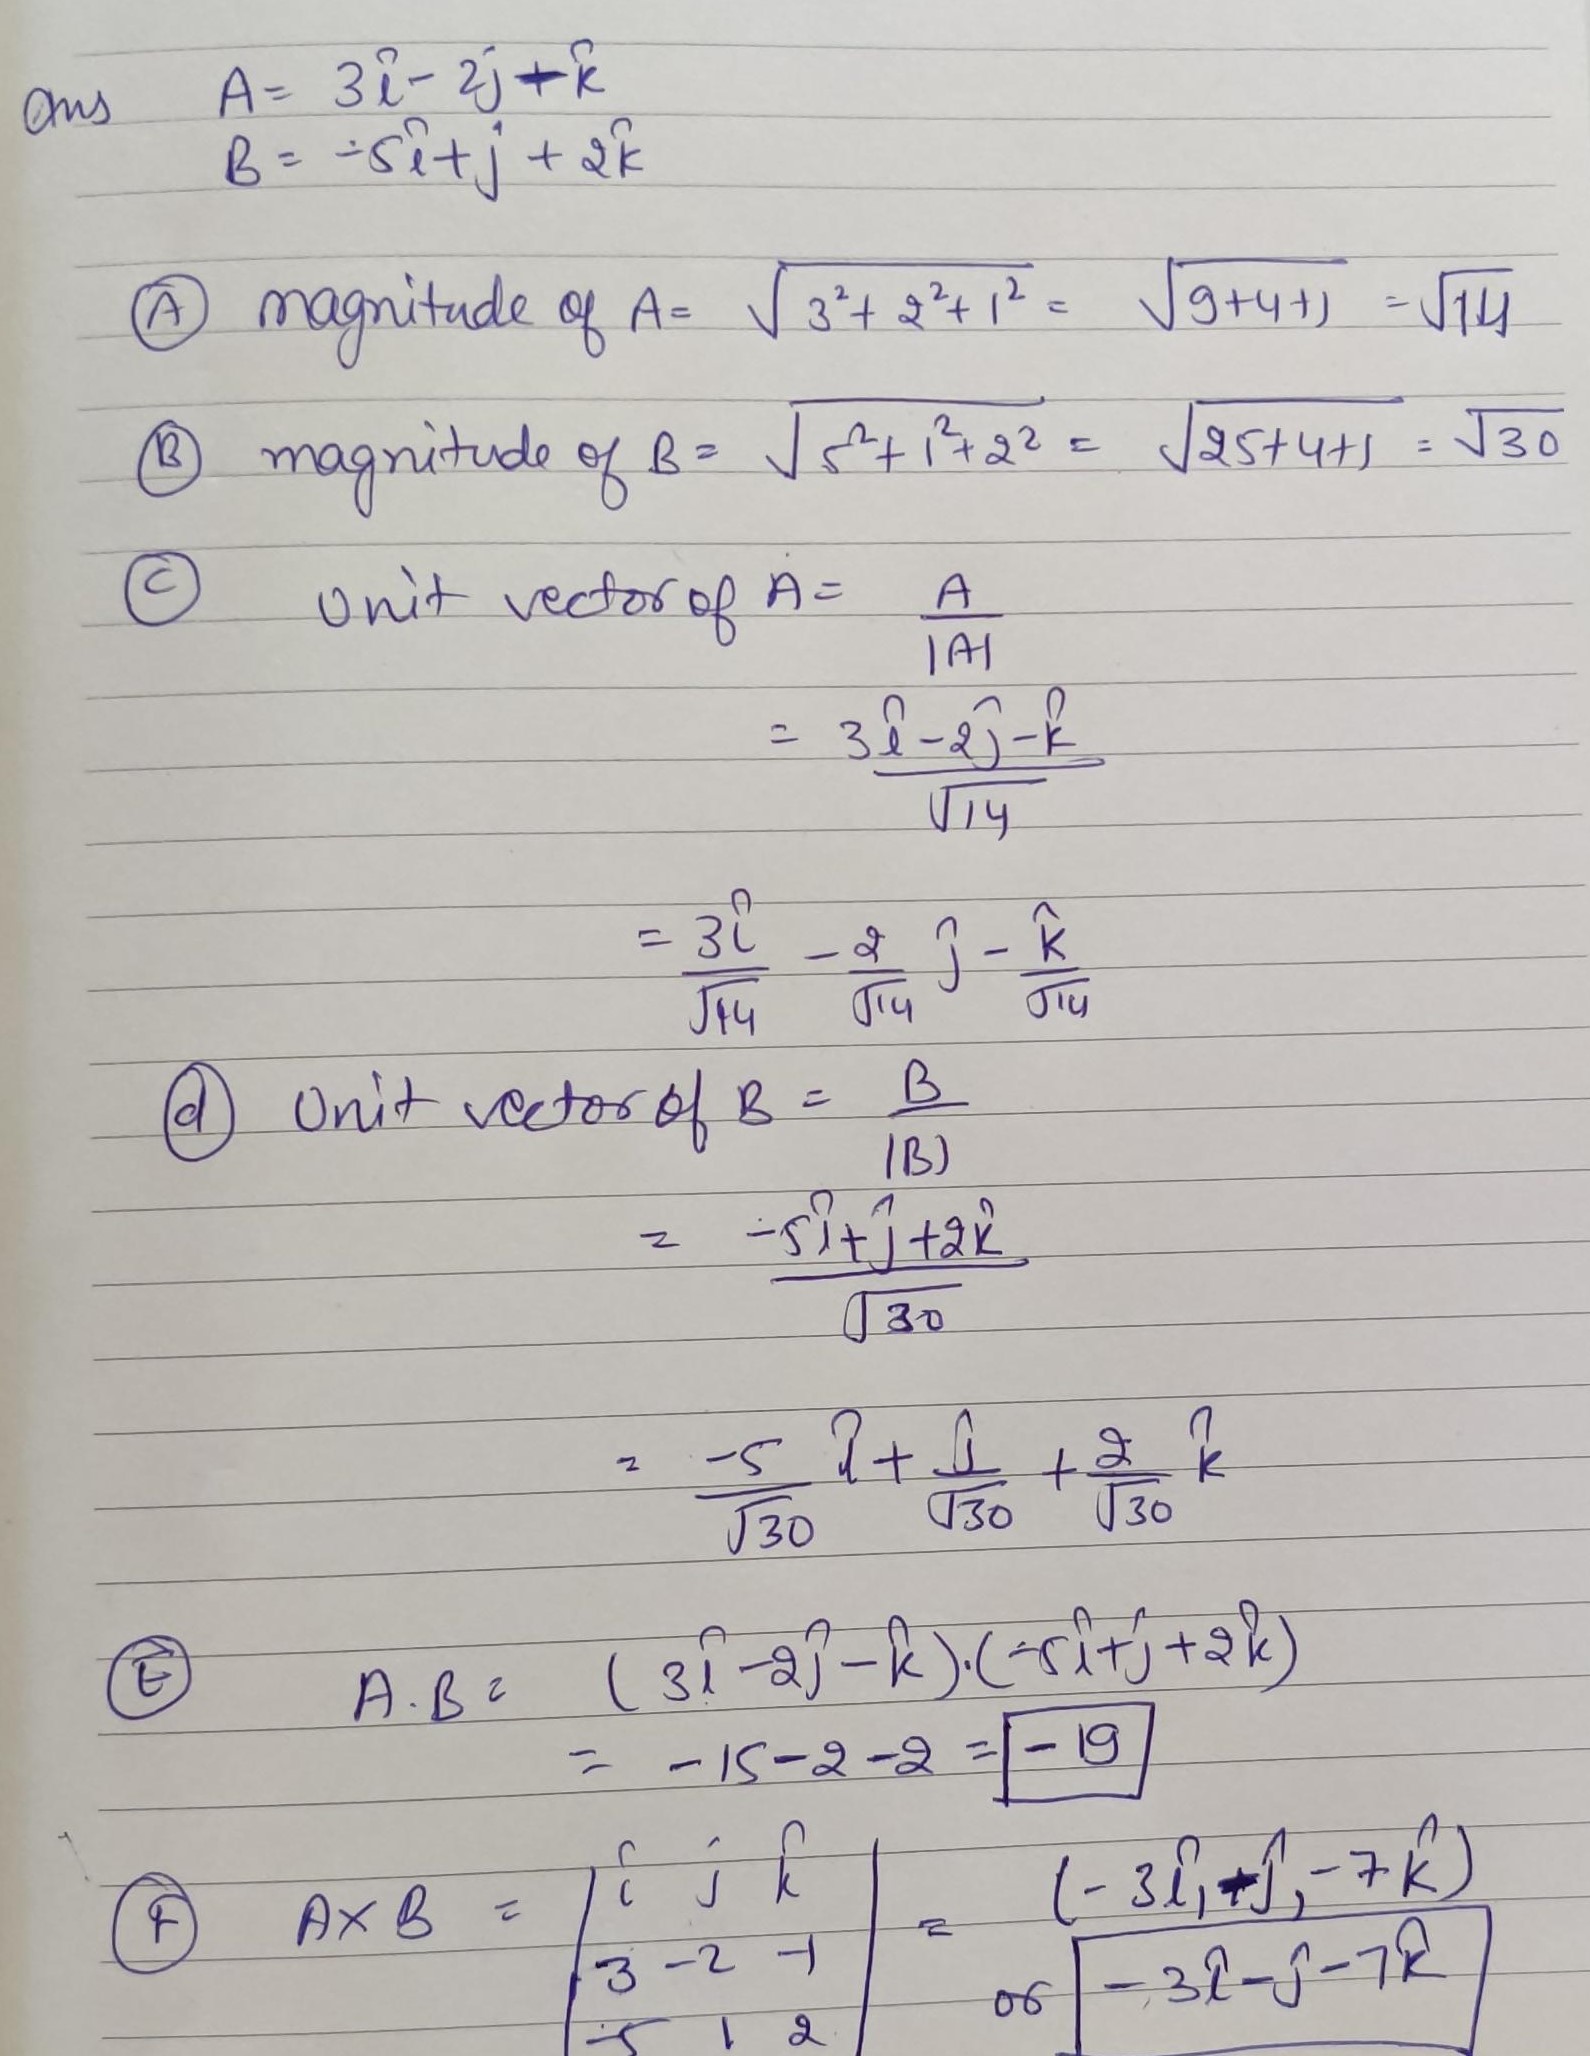 Ans A = 3î - 2j - k̂
B = -5î + j + 2k̂
(A) magnitude of A = √(3² + 2² + 1²) = √(9+4+1) = √14
(B) magnitude of B = √(5² + 1² + 2²) = √(25+4+1) = √30
(C) Unit vector of A = A / |A|
= (3î - 2ĵ - k̂) / √14
= 3î/√14 - 2/√14 ĵ - k̂/√14
(d) Unit vector of B = B / |B|
= (-5î + ĵ + 2k̂) / √30
= -5/√30 î + ĵ/√30 + 2/√30 k̂
(E) A.B = (3î - 2ĵ - k̂).(-5î + j + 2k̂)
= -15 - 2 - 2 = -19
(F) A×B = | î j k̂ | = (-3î, -ĵ, -7k̂)
3 -2 -1
or -3î - ĵ - 7k̂
-5 1 2